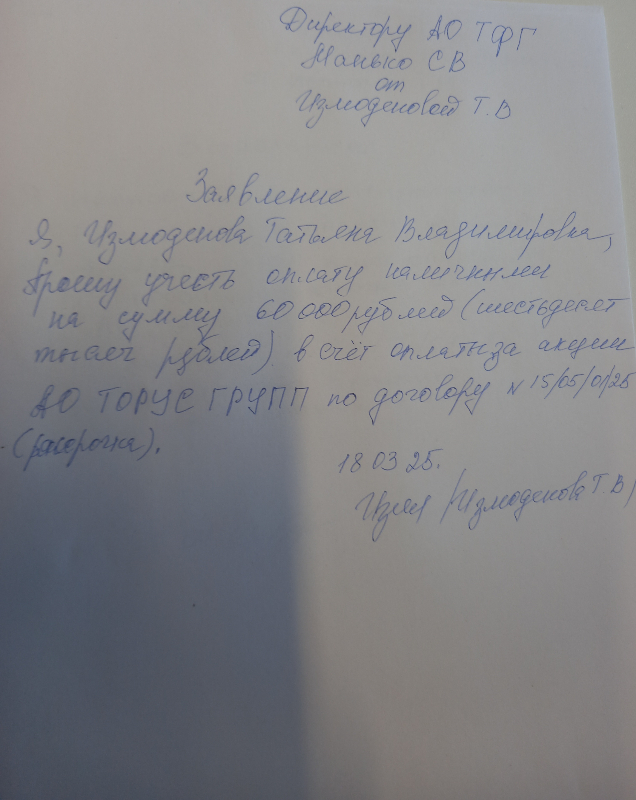 Директору АО ТФГ
Манько СВ
от
Измоденовой Т.В
Заявление
Я, Измоденова Татьяна Владимировна,
прошу учесть оплату наличными
на сумму 60 000 рублей (шестьдесят
тысяч рублей) в счёт оплаты за акции
АО ТОРУС ГРУПП по договору N 15/05/01/25
(рассрочка).
18 03 25.
Изм /Измоденова Т.В/